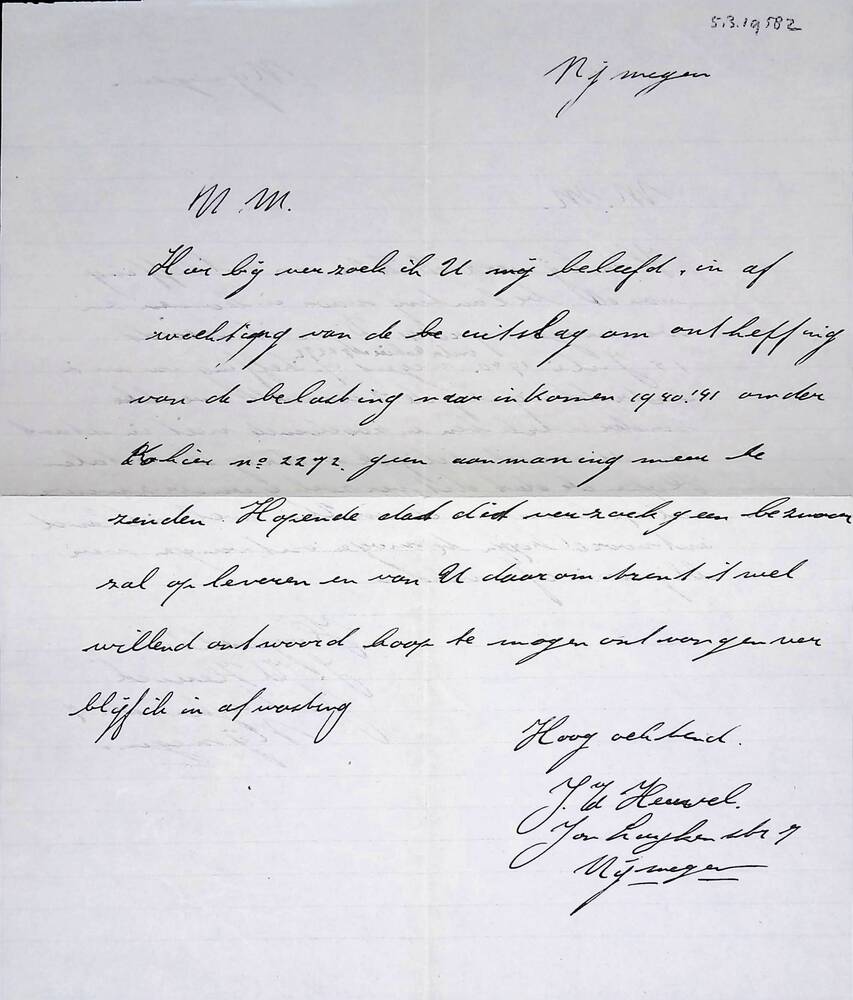 5.3.19582
Nijmegen
M.M.
Hier bij verzoek ik U mij beleefd, in af
wachtiging van de be uitslag om ontheffing
van de belasting naar inkomen 1940.'41 onder
Kohier no 2272. geen aanmaning meer te
zenden. Hopende dat dit verzoek geen bezwaar
zal op leveren en van U daar om trent 't wel
willend antwoord hoop te mogen ontvangen ver
blijf ik in afwachting
Hoog achtend.
J. Heuvel.
Jan Luykenstr 7
Nijmegen